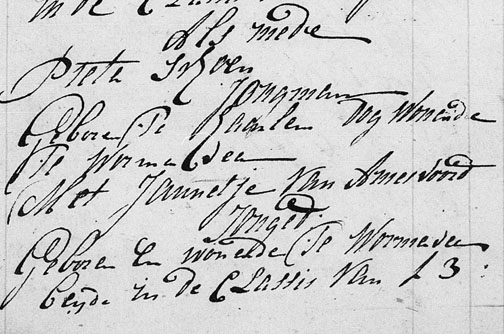 in de Classis
Als mede
Pieter Schoen
Jongman
Geboren Te Haarlem Dog Wonende
Te Wormerveer
Met Jannetje Van Amesvoord
Jonged.
Geboren En wonende Te Wormerveer
beyde in de Classis Van f 3: